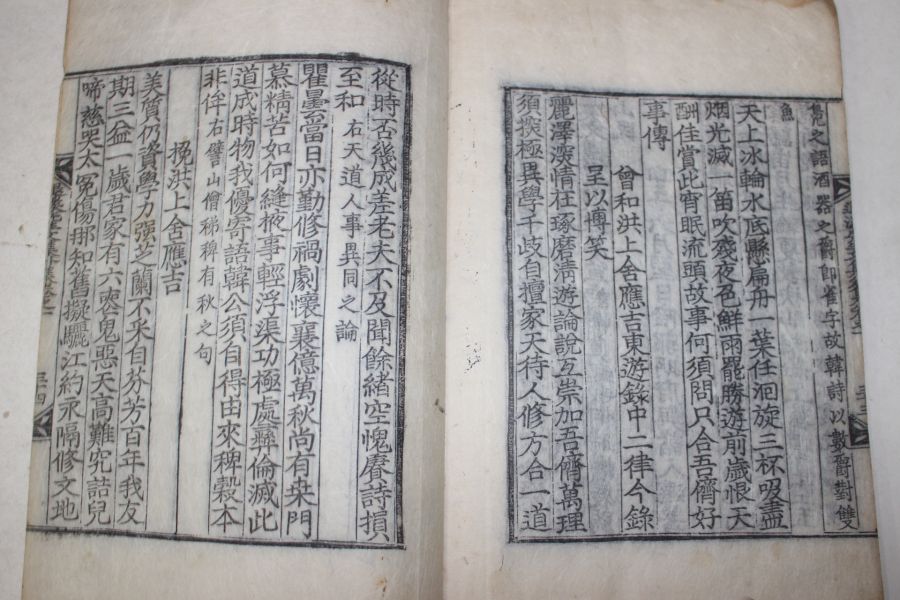 覺之語酒器之爵卽雀字故韓詩以數爵對雙
魚
天上氷輪水底懸扁舟一葉任洄旋三杯吸盡
烟光滅一笛吹殘夜色鮮雨罷勝遊前歲恨天
酬佳賞此宵眠流頭故事何須問只合吾儕好
事傳
曾和洪上舍應吉東遊錄中二律今錄
呈以博笑
麗澤深情在琢磨淸遊論說互崇加吾儕萬理
須探極異學千歧自擅家天待人修方合一道
從時否幾成差老夫不及聞餘緖空愧賡詩損
至和 右天道人事異同之論
瞿曇當日亦勤修禍劇懷襄億萬秋尚有桒門
慕精苦如何縫掖事輕浮渠功極處彝倫滅此
道成時物我優寄語韓公須自得由來稗穀本
非侔 右譬山僧稊稗有秋之句
挽洪上舍應吉
美質仍資學力强芝蘭不采自芬芳百年我友
期三益一歲君家有六喪鬼惡天高難究詰兒
啼慈哭太冤傷那知舊擬驪江約永隔修文地
三十四